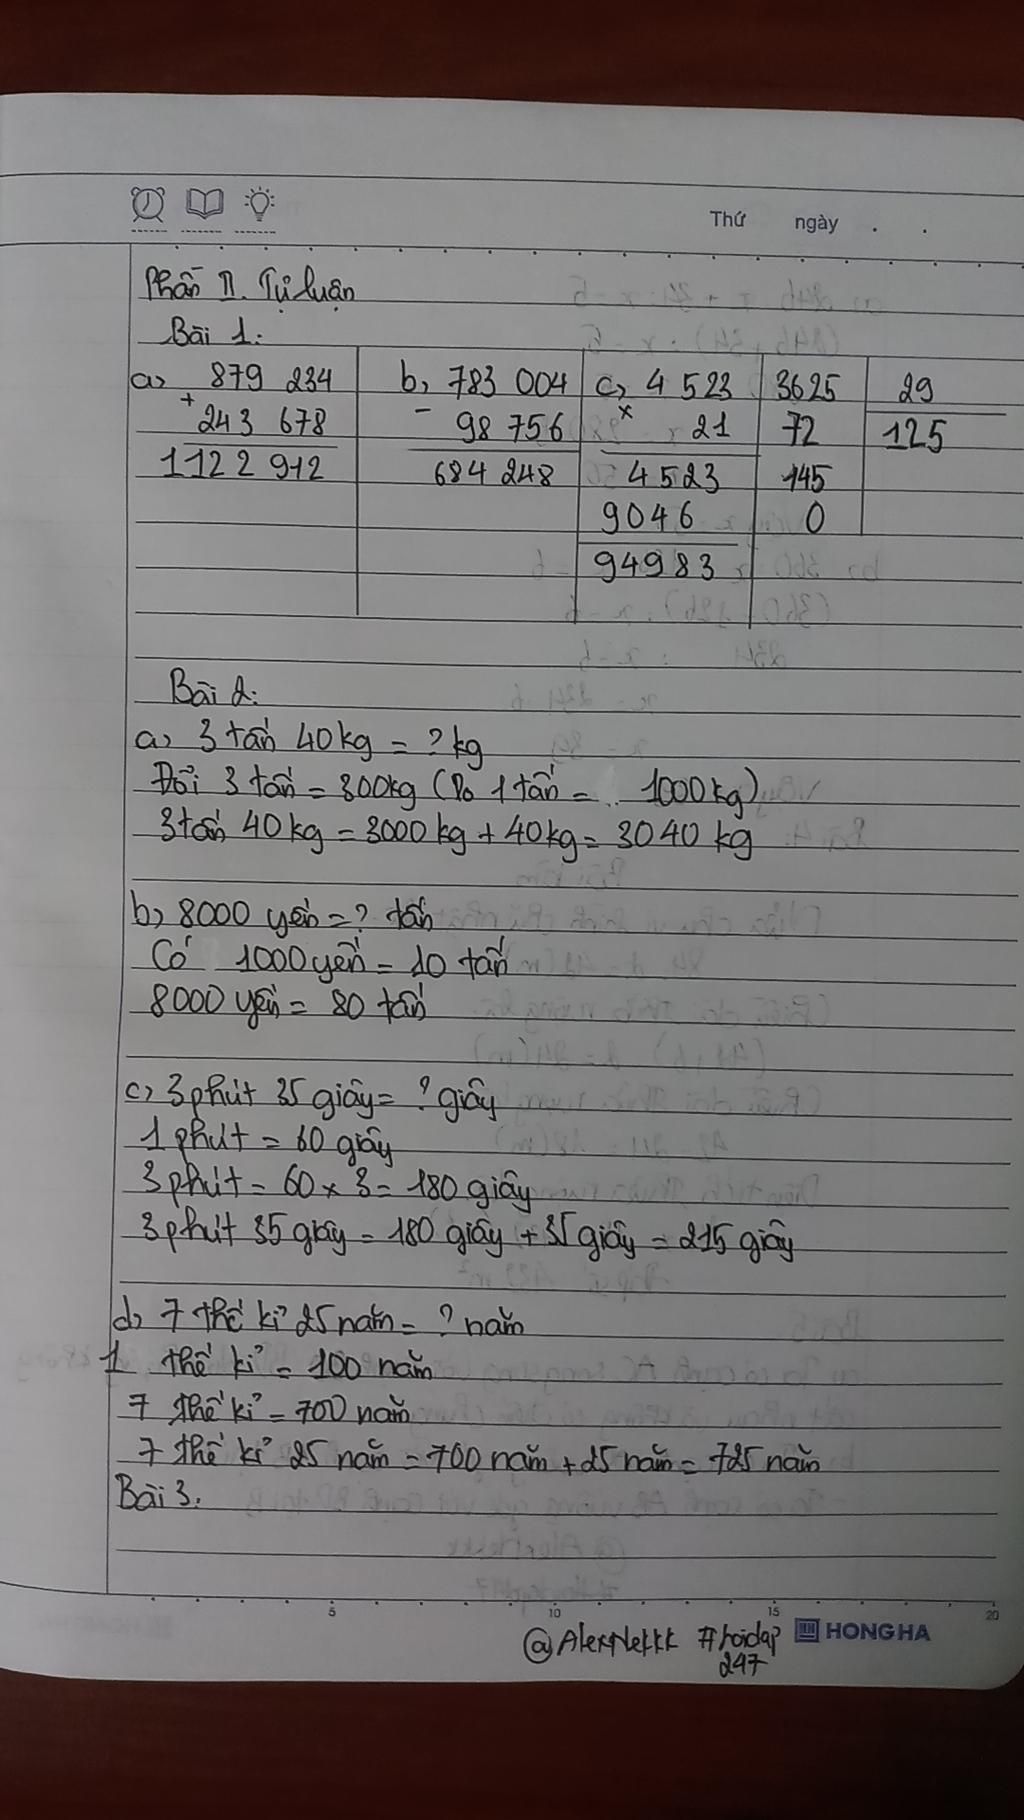 Thứ ngày . .
Phần II. Tự luận
Bài 1:
a, 879 234 b, 783 004 c, 4 523 3625 29
+ 243 678 - 98 756 x 21 72 125
1122 912 684 248 4 523 145
9046 0
94983
Bài 2:
a, 3 tấn 40 kg = ? kg
Đổi 3 tấn = 300kg (Do 1 tấn = 1000 kg)
3 tấn 40 kg = 3000 kg + 40 kg = 3040 kg
b, 8000 yến = ? tấn
Có 1000 yến = 10 tấn
8000 yến = 80 tấn
c, 3 phút 35 giây = ? giây
1 phút = 60 giây
3 phút = 60 x 3 = 180 giây
3 phút 35 giây = 180 giây + 35 giây = 215 giây
d, 7 thế kỉ 25 năm = ? năm
1 thế kỉ = 100 năm
7 thế kỉ = 700 năm
7 thế kỉ 25 năm = 700 năm + 25 năm = 725 năm
Bài 3.
5 10 15 20
HONG HA
@AlexNekkk #hoidap
247